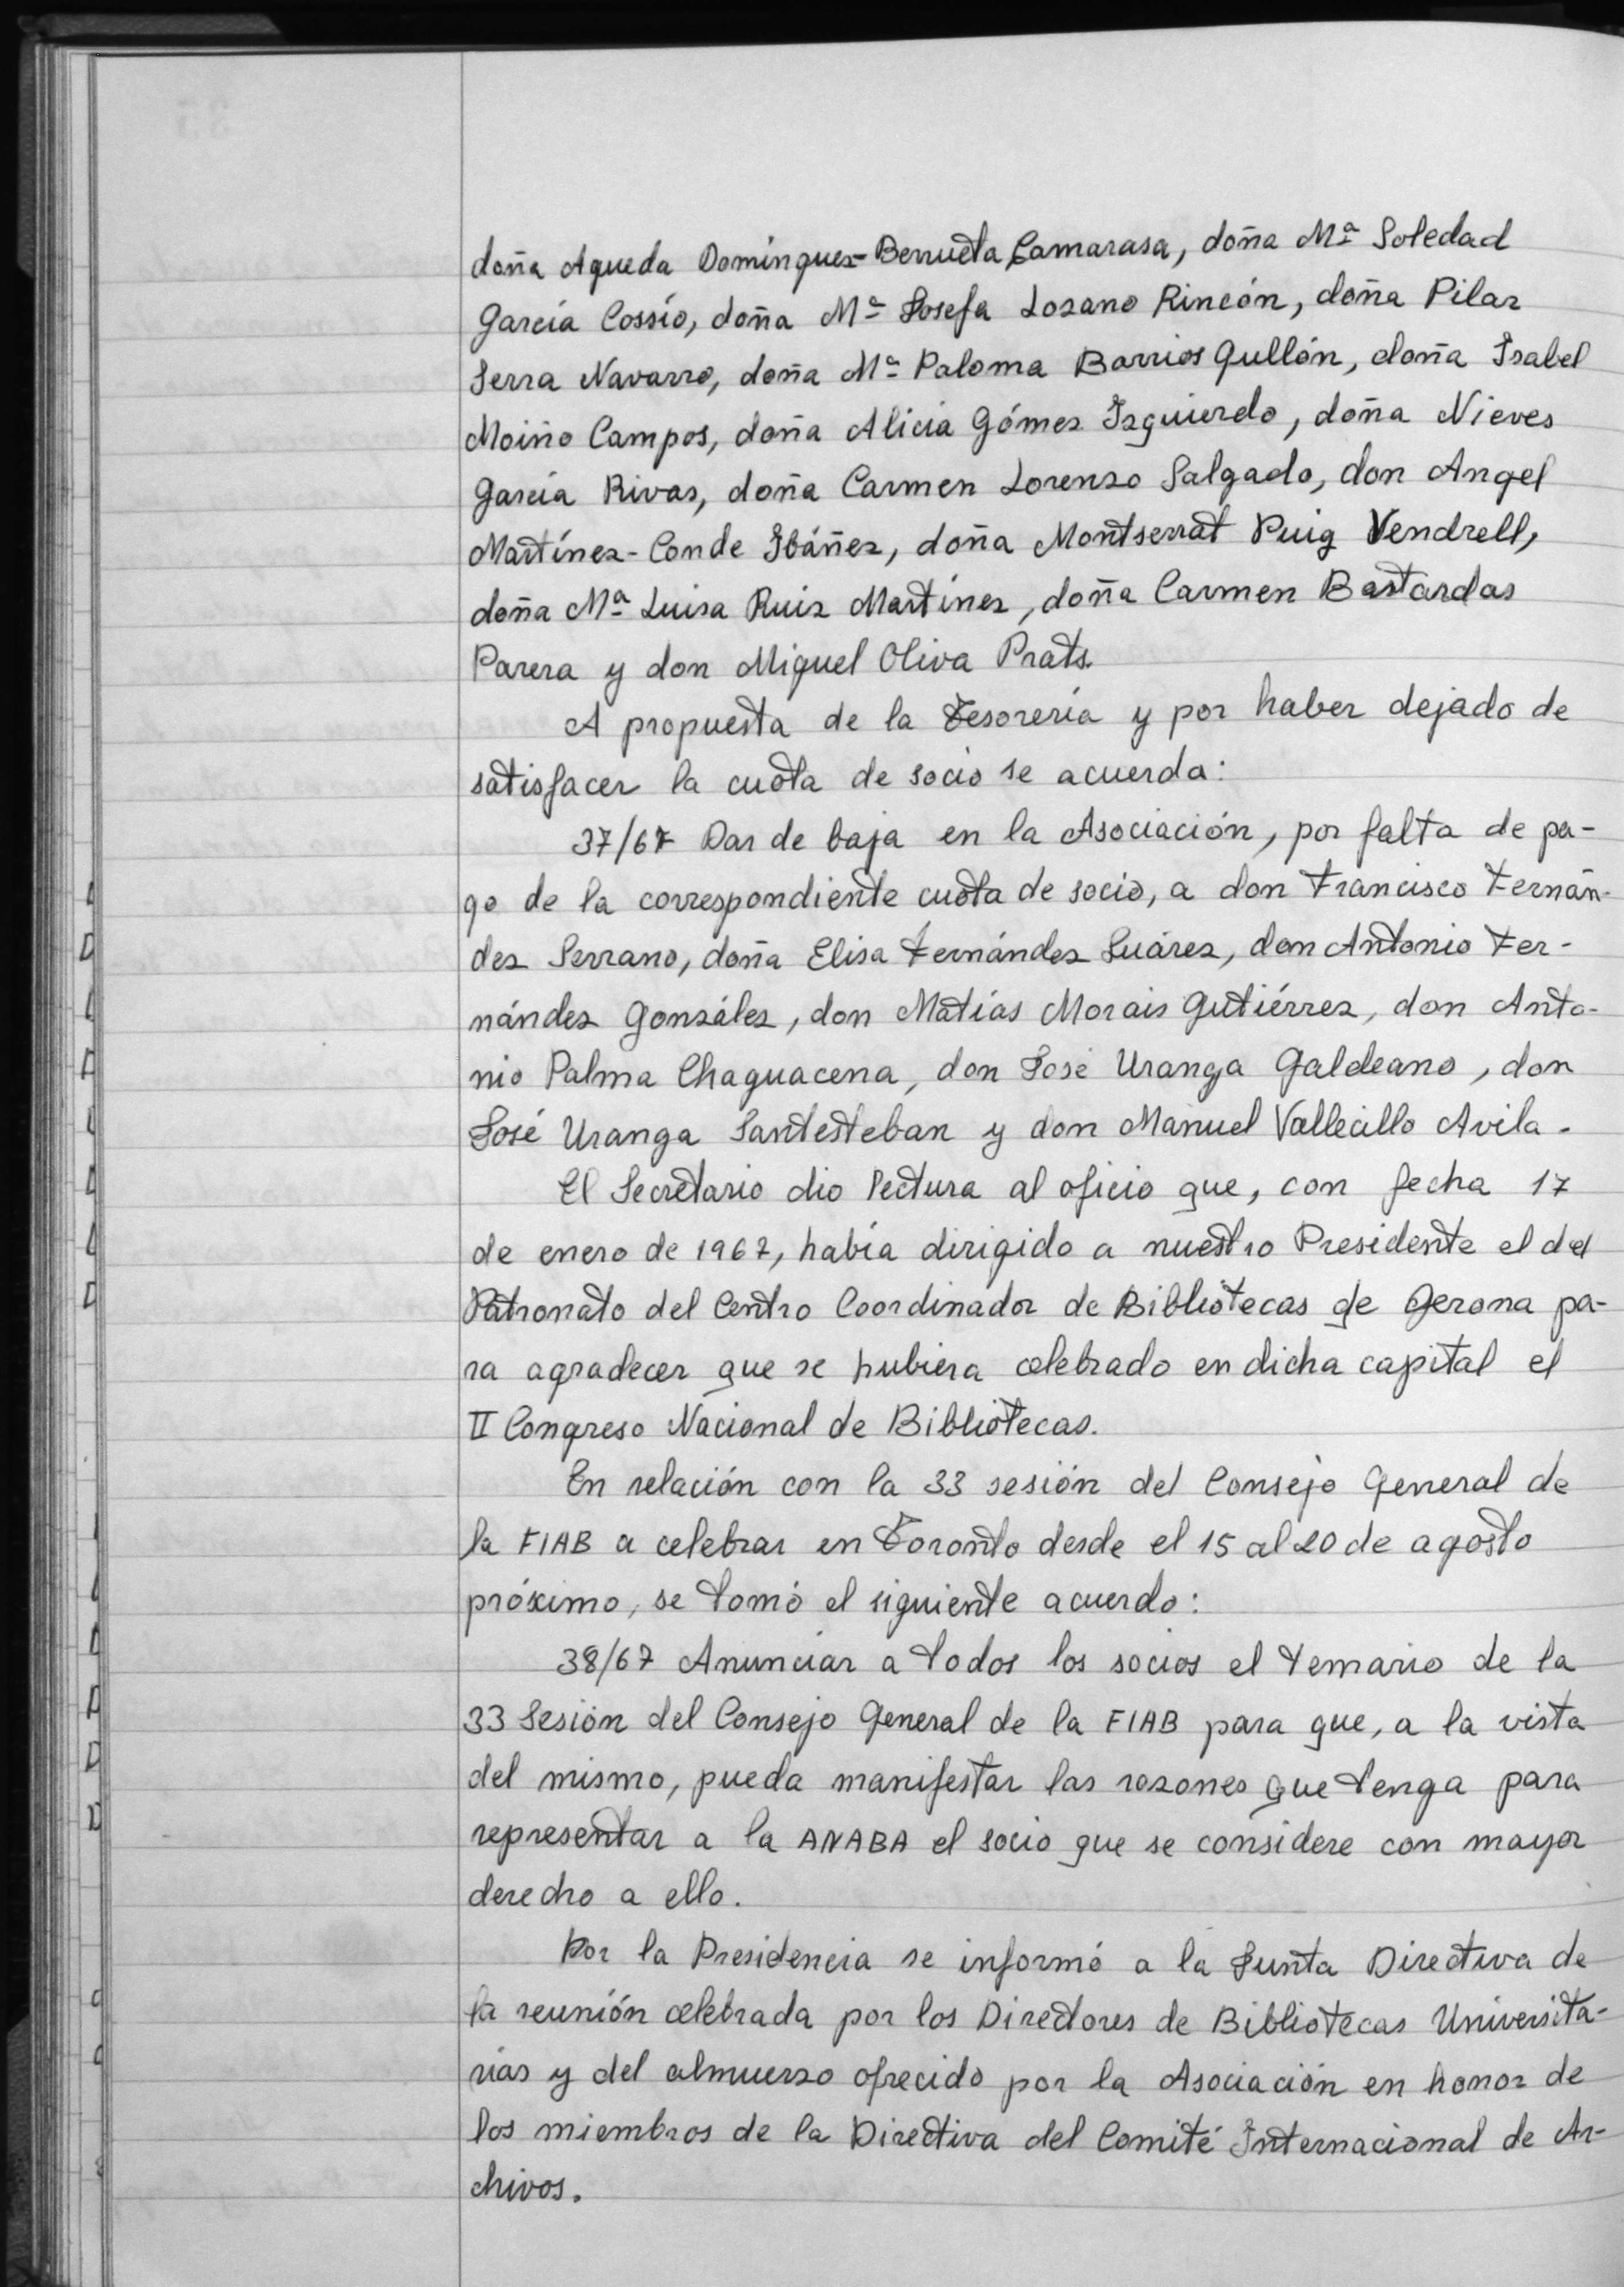 doña Agueda Domínguez-Berrueta Camarasa, doña Mª Soledad
García Cossío, doña Mª Josefa Lozano Rincón, doña Pilar
Serra Navarro, doña Mª Paloma Barrios Gullón, doña Isabel
Moiño Campos, doña Alicia Gómez Izquierdo, doña Nieves
García Rivas, doña Carmen Lorenzo Salgado, don Angel
Martínez-Conde Ibáñez, doña Montserrat Puig Vendrell,
doña Mª Luisa Ruiz Martínez, doña Carmen Bastardas
Parera y don Miguel Oliva Prats.
A propuesta de la Tesorería y por haber dejado de
satisfacer la cuota de socio se acuerda:
37/67 Dar de baja en la Asociación, por falta de pa-
go de la correspondiente cuota de socio, a don Francisco Fernán-
dez Serrano, doña Elisa Fernández Suárez, don Antonio Fer-
nández González, don Matías Morais Gutiérrez, don Anto-
nio Palma Chaguacena, don José Uranga Galdeano, don
José Uranga Santesteban y don Manuel Vallecillo Avila.
El Secretario dio lectura al oficio que, con fecha 17
de enero de 1967, había dirigido a nuestro Presidente el del
Patronato del Centro Coordinador de Bibliotecas de Gerona pa-
ra agradecer que se hubiera celebrado en dicha capital el
II Congreso Nacional de Bibliotecas.
En relación con la 33 sesión del Consejo General de
la FIAB a celebrar en Toronto desde el 15 al 20 de agosto
próximo, se tomó el siguiente acuerdo:
38/67 Anunciar a todos los socios el temario de la
33 Sesión del Consejo General de la FIAB para que, a la vista
del mismo, pueda manifestar las razones que tenga para
representar a la ANABA el socio que se considere con mayor
derecho a ello.
Por la Presidencia se informó a la Junta Directiva de
la reunión celebrada por los Directores de Bibliotecas Universita-
rias y del almuerzo ofrecido por la Asociación en honor de
los miembros de la Directiva del Comité Internacional de Ar-
chivos.